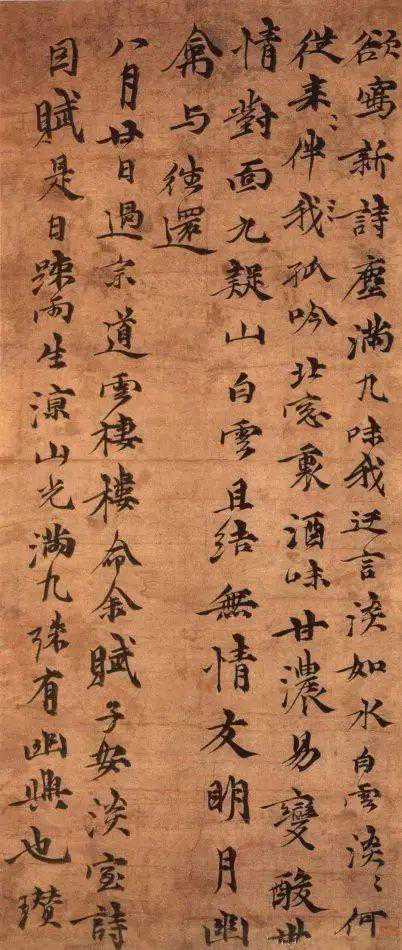 欲寫新詩塵滿几味我迂言淡如水白雲淡〻何
從來〻伴我孤吟北窓裏酒味甘濃易變酸世
情對面九疑山白雲且結無情友明月幽
禽与往還
八月廿日過宗道雲棲樓命余賦子安淡室詩
因賦是日踈雨生涼山光滿几殊有幽興也瓚